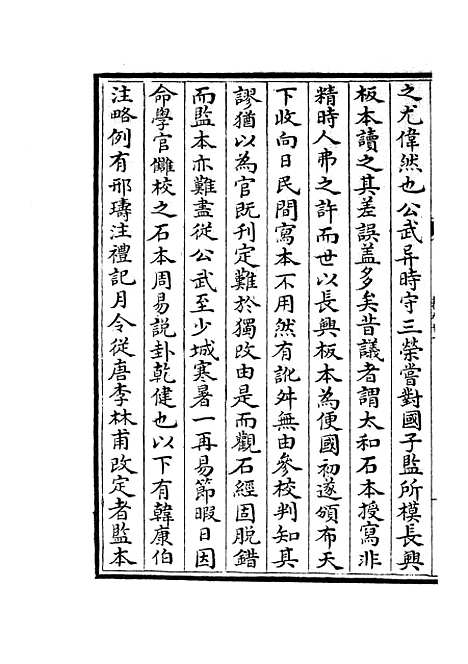 之尤偉然也公武异時守三榮嘗對國子監所模長興
板本讀之其差誤盖多矣昔議者謂太和石本授寫非
精時人弗之許而世以長興板本為便國初遂頒布天
下收向日民間寫本不用然有訛舛無由參校判知其
謬猶以為官既刊定難於獨改由是而觀石經固脱錯
而監本亦難盡從公武至少城寒暑一再易節暇日因
命學官讎校之石本周易説卦乾健也以下有韓康伯
注略例有邢璹注禮記月令從唐李林甫改定者監本